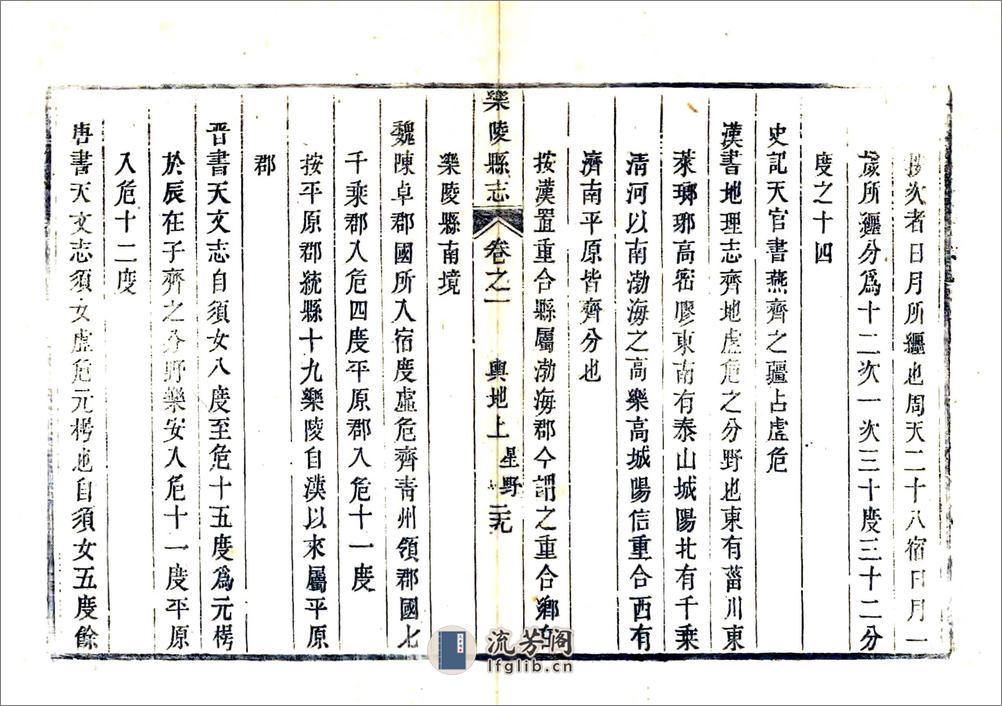 按次者日月所纏也周天二十八宿日月一
歲所纏分爲十二次一次三十度三十二分
度之十四
史記天官書燕齊之疆占虛危
漢書地理志齊地虛危之分野也東有菑川東
萊瑯琊高密膠東南有泰山城陽北有千乘
清河以南渤海之高樂高城陽信重合西有
濟南平原皆齊分也
按漢置重合縣屬渤海郡今謂之重合鄉在
樂陵縣志 卷之一 輿地上 星野 二九
樂陵縣南境
魏陳卓郡國所入宿度虛危齊青州領郡國七
千乘郡入危四度平原郡入危十一度
按平原郡統縣十九樂陵自漢以來屬平原
郡
晋書天文志自須女八度至危十五度爲元枵
於辰在子齊之分野樂安入危十一度平原
入危十二度
唐書天文志須女虛危元枵也自須女五度餘
流芳閣
lfglib.cn